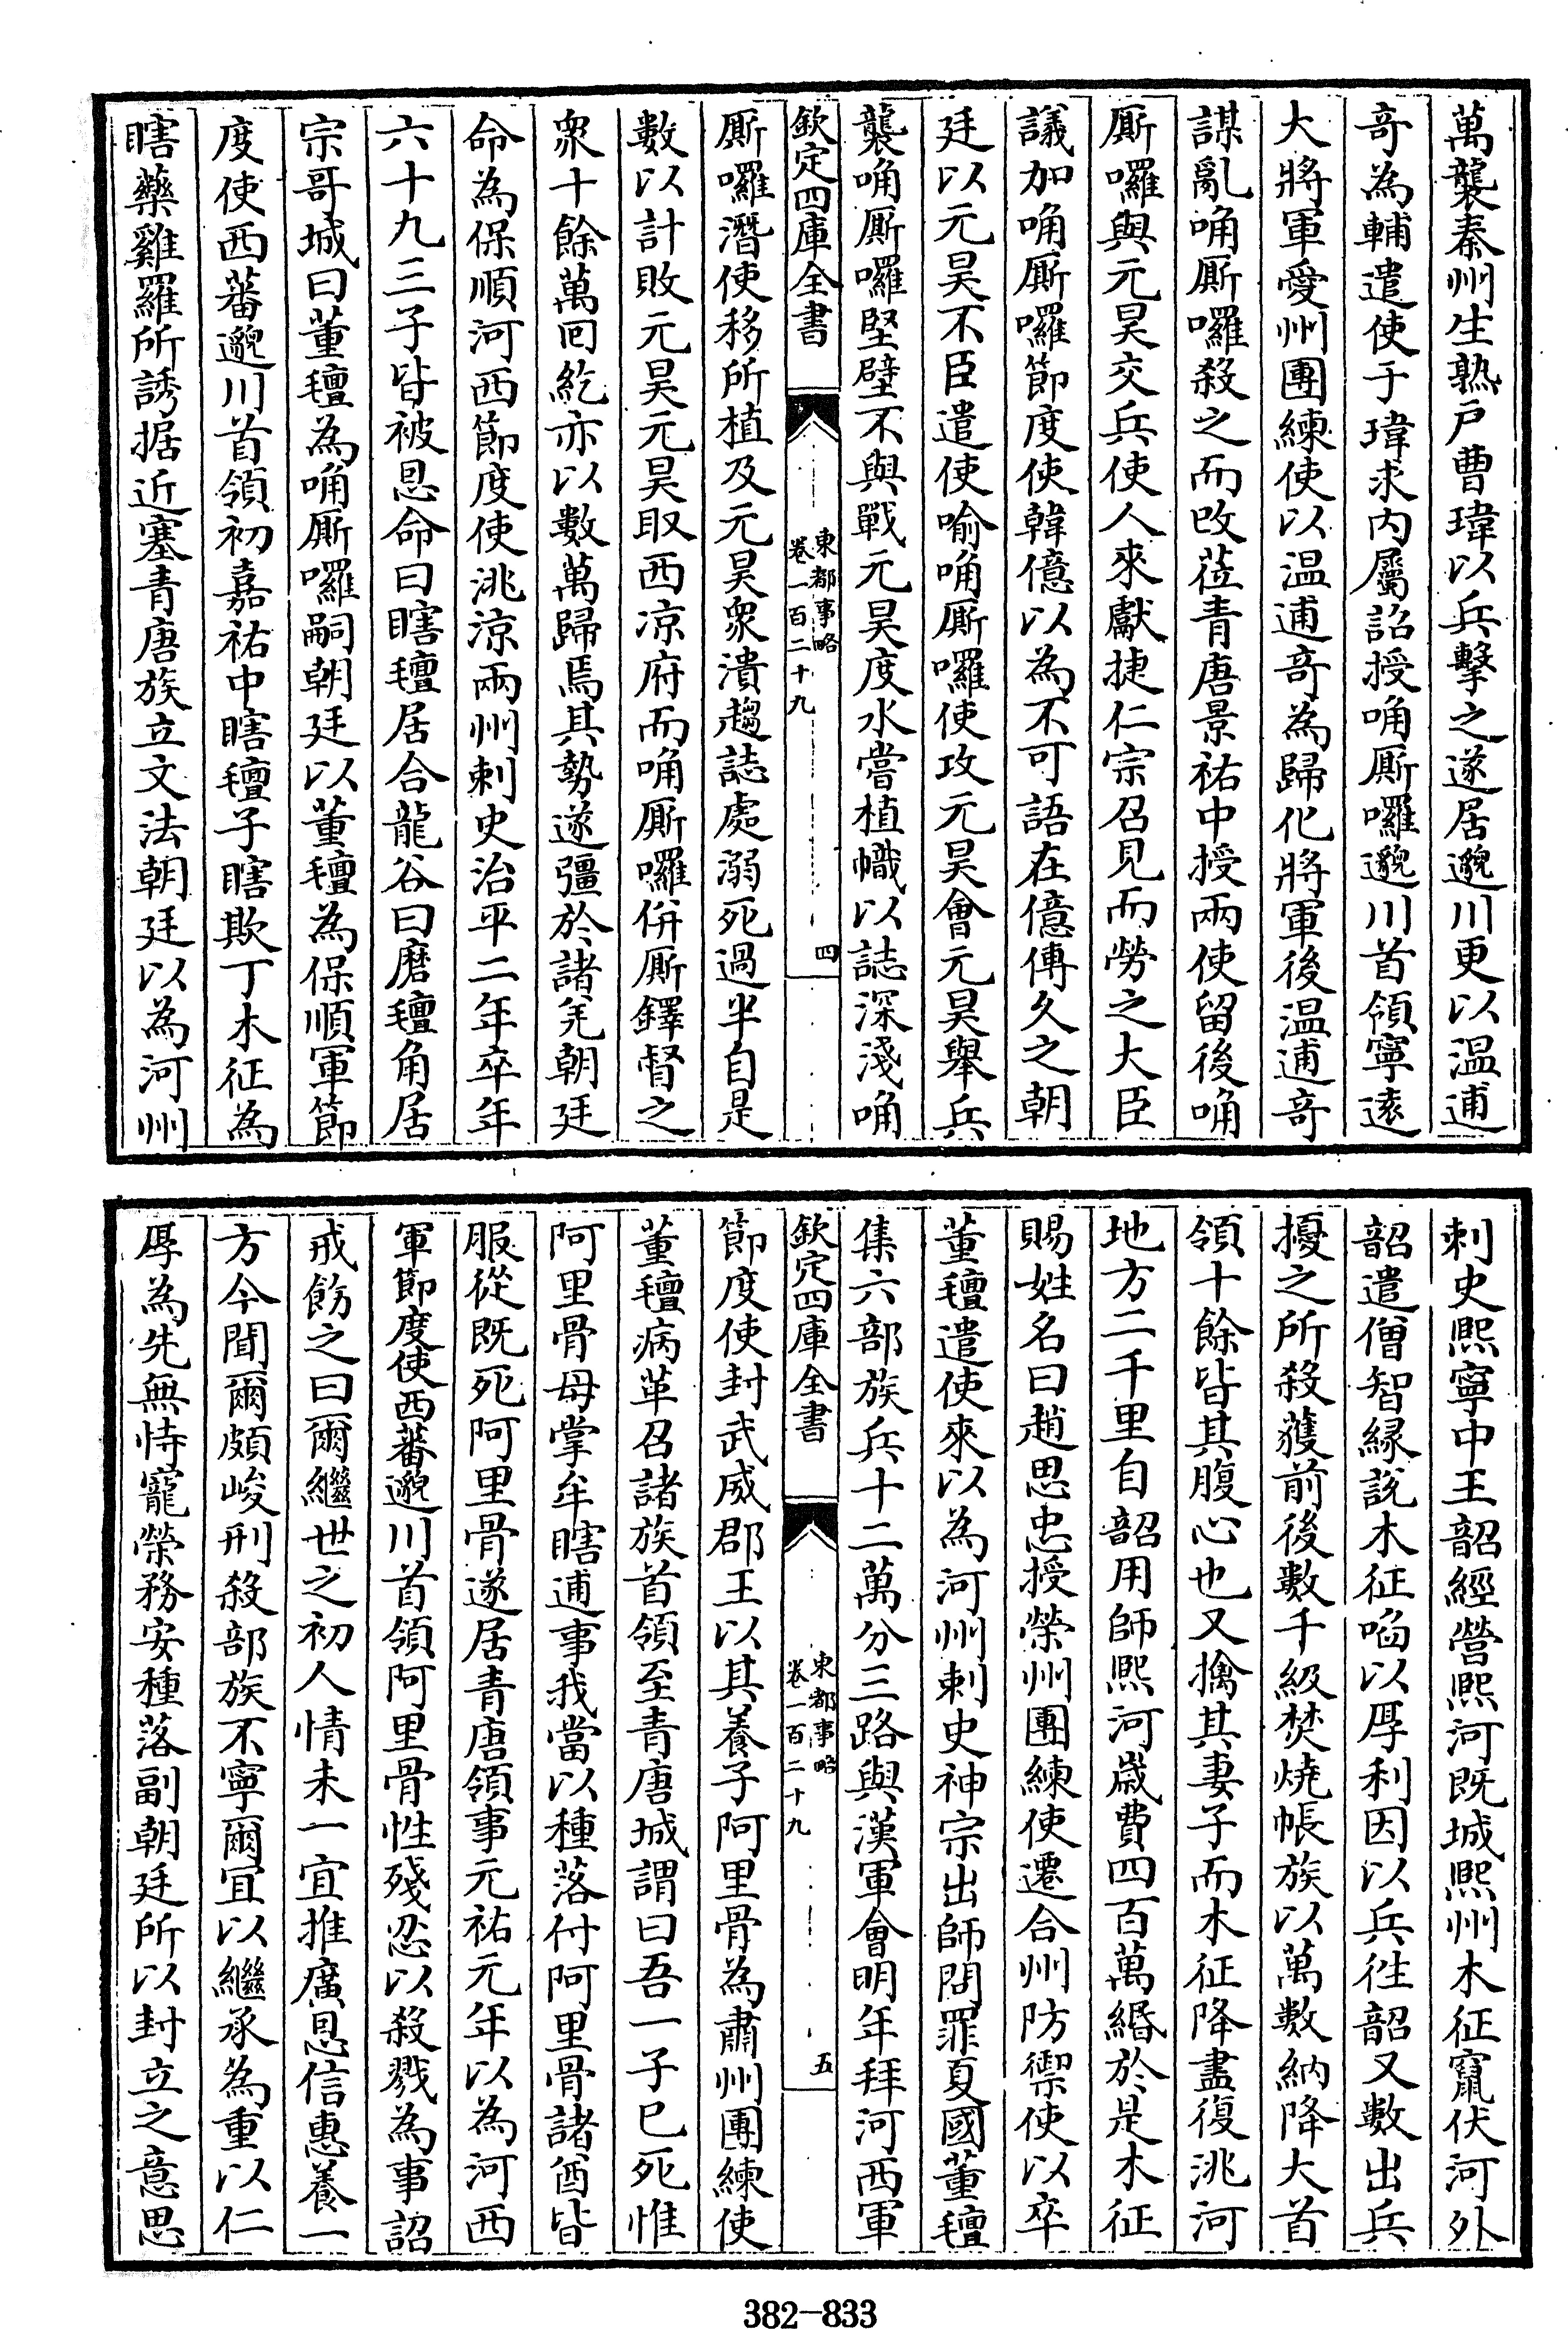 萬襲秦州生熟戶曹瑋以兵擊之遂居邈川更以温逋
奇為輔遣使于瑋求內屬詔授唃厮囉邈川首領寧逺
大將軍愛州團練使以温逋奇為歸化將軍後温逋奇
謀亂唃厮囉殺之而改莅青唐景祐中授兩使留後唃
厮囉與元昊交兵使人來獻捷仁宗召見而勞之大臣
議加唃厮囉節度使韓億以為不可語在億傳久之朝
廷以元昊不臣遣使喻唃厮囉使攻元昊會元昊舉兵
襲唃厮囉堅壁不與戰元昊度水嘗植幟以誌深淺唃
欽定四庫全書
東都事略
卷一百二十九
四
厮囉潛使移所植及元昊衆潰趨誌處溺死過半自是
數以計敗元昊元昊取西凉府而唃厮囉併厮鐸督之
衆十餘萬回紇亦以數萬歸焉其勢遂彊於諸羌朝廷
命為保順河西節度使洮涼兩州刺史治平二年卒年
六十九三子皆被恩命曰瞎氊居合龍谷曰磨氊角居
宗哥城曰董氊為唃厮囉嗣朝廷以董氊為保順軍節
度使西蕃邈川首領初嘉祐中瞎氊子瞎欺丁木征為
瞎藥雞羅所誘据近塞青唐族立文法朝廷以為河州
刺史熙寧中王韶經營熙河既城熙州木征竄伏河外
韶遣僧智縁說木征啗以厚利因以兵徃韶又數出兵
擾之所殺獲前後數千級焚燒帳族以萬數納降大首
領十餘皆其腹心也又擒其妻子而木征降盡復洮河
地方二千里自韶用師熙河歳費四百萬緡於是木征
賜姓名曰趙思忠授榮州團練使遷合州防禦使以卒
董氊遣使來以為河州刺史神宗出師問罪夏國董氊
集六部族兵十二萬分三路與漢軍會明年拜河西軍
欽定四庫全書
東都事略
卷一百二十九
五
節度使封武威郡王以其養子阿里骨為肅州團練使
董氊病革召諸族首領至青唐城謂曰吾一子已死惟
阿里骨母掌牟瞎逋事我當以種落付阿里骨諸酋皆
服從既死阿里骨遂居青唐領事元祐元年以為河西
軍節度使西蕃邈川首領阿里骨性殘忍以殺戮為事詔
戒飭之曰爾繼世之初人情未一宜推廣恩信惠養一
方今聞爾頗峻刑殺部族不寧爾宜以繼承為重以仁
厚為先無恃寵榮務安種落副朝廷所以封立之意思
382-833